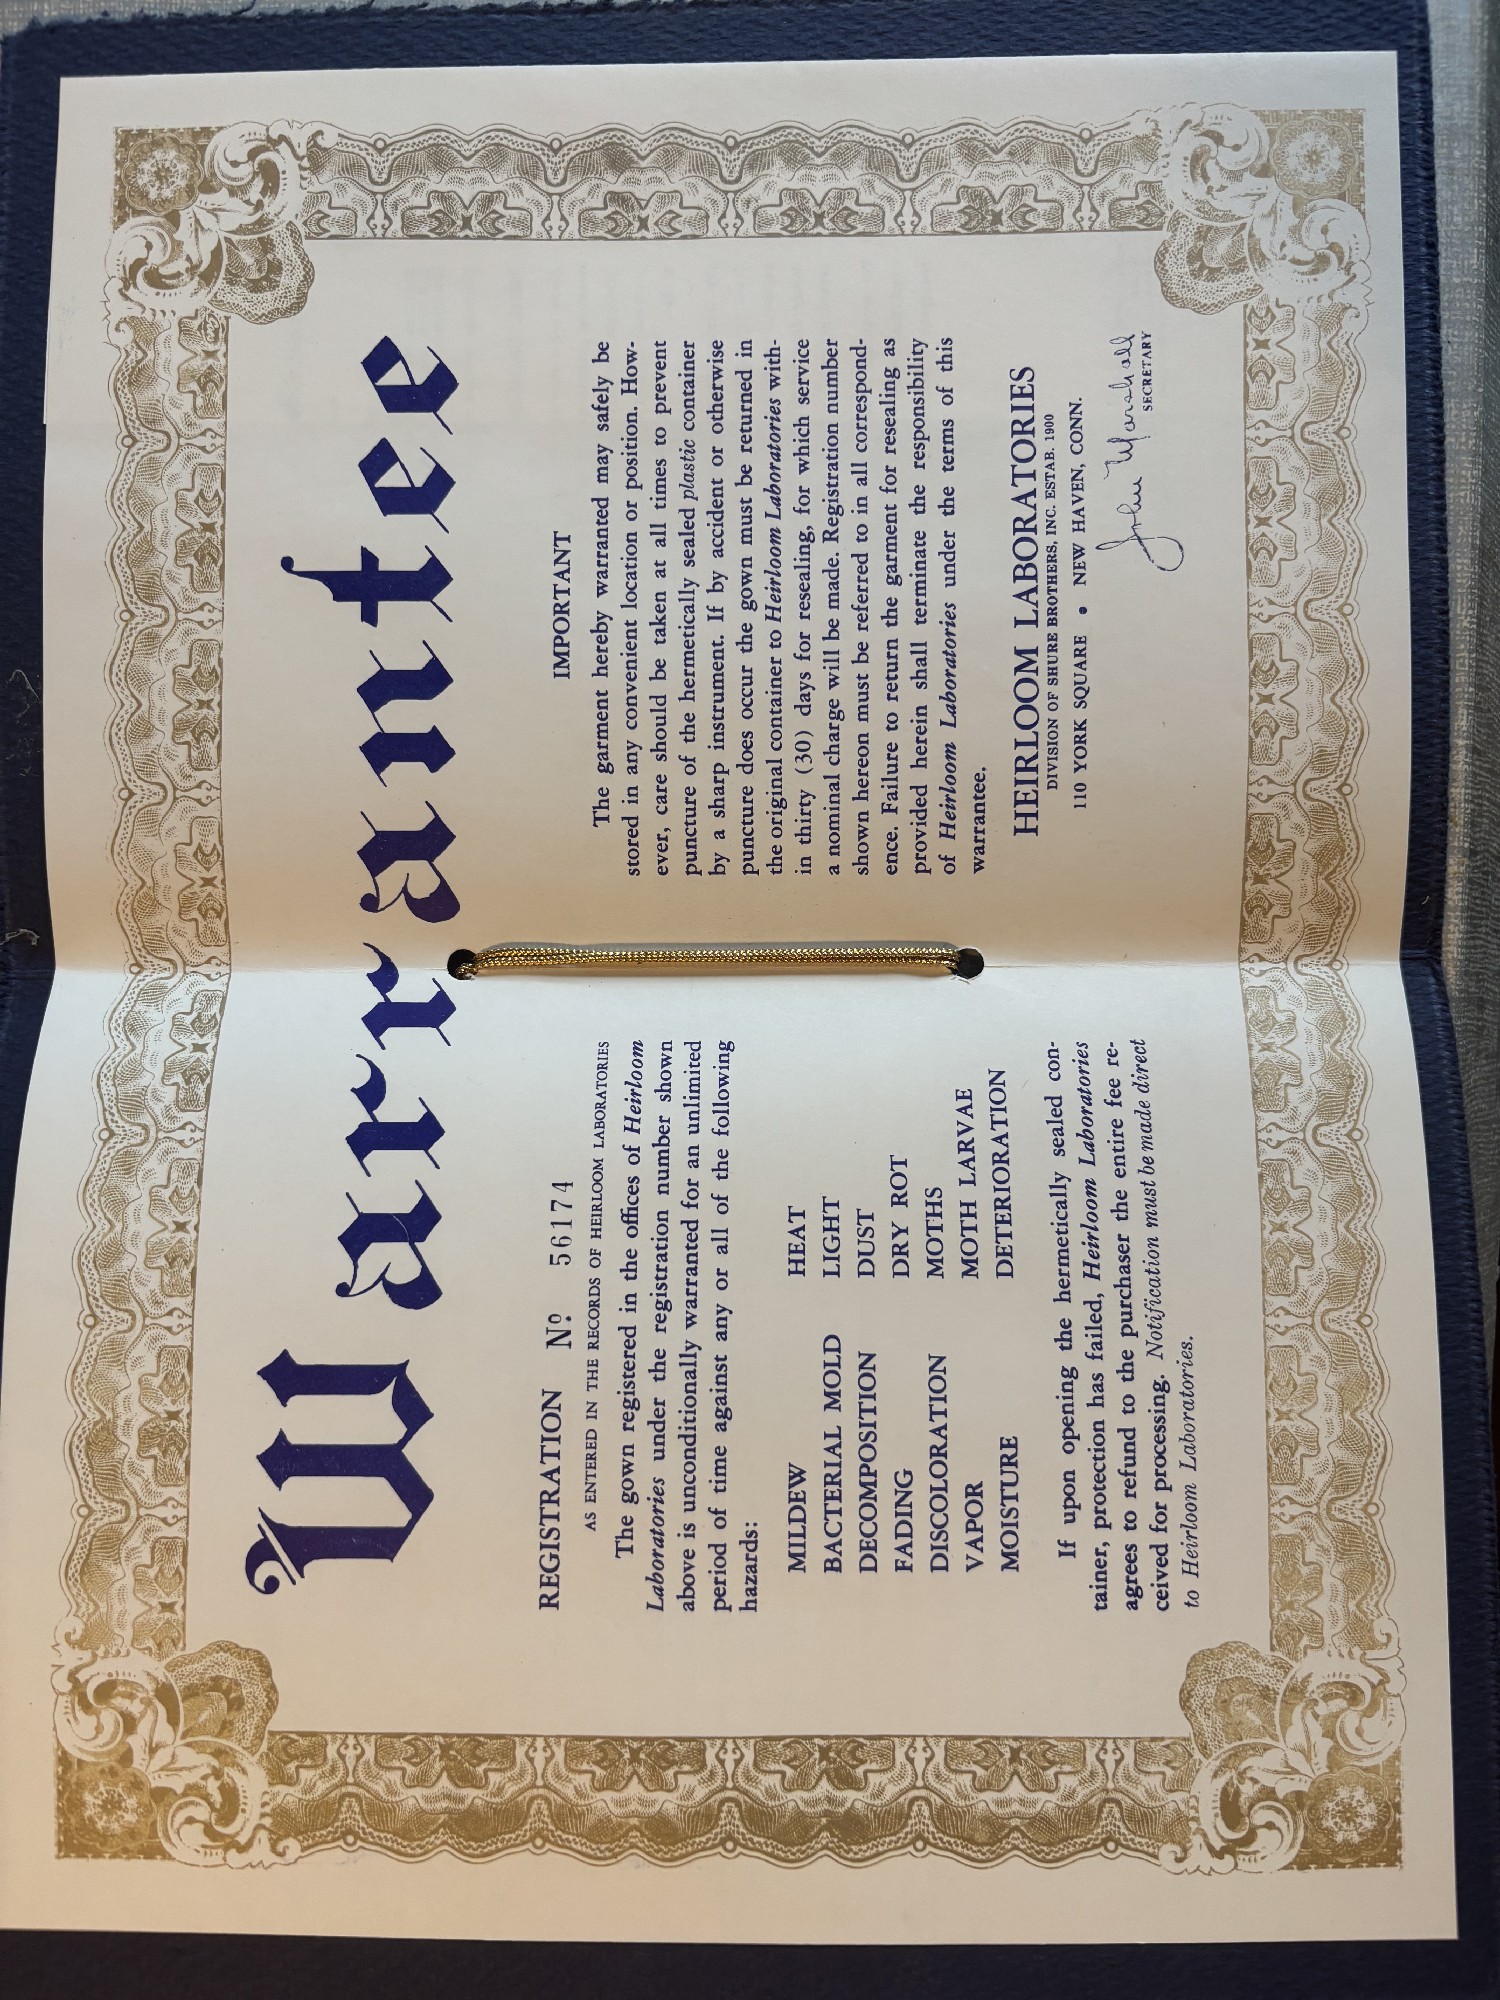 Warrantee
REGISTRATION Nº 56174
AS ENTERED IN THE RECORDS OF HEIRLOOM LABORATORIES
The gown registered in the offices of Heirloom
Laboratories under the registration number shown
above is unconditionally warranted for an unlimited
period of time against any or all of the following
hazards:
MILDEW HEAT
BACTERIAL MOLD LIGHT
DECOMPOSITION DUST
FADING DRY ROT
DISCOLORATION MOTHS
VAPOR MOTH LARVAE
MOISTURE DETERIORATION
If upon opening the hermetically sealed con-
tainer, protection has failed, Heirloom Laboratories
agrees to refund to the purchaser the entire fee re-
ceived for processing. Notification must be made direct
to Heirloom Laboratories.
IMPORTANT
The garment hereby warranted may safely be
stored in any convenient location or position. How-
ever, care should be taken at all times to prevent
puncture of the hermetically sealed plastic container
by a sharp instrument. If by accident or otherwise
puncture does occur the gown must be returned in
the original container to Heirloom Laboratories with-
in thirty (30) days for resealing, for which service
a nominal charge will be made. Registration number
shown hereon must be referred to in all correspond-
ence. Failure to return the garment for resealing as
provided herein shall terminate the responsibility
of Heirloom Laboratories under the terms of this
warrantee.
HEIRLOOM LABORATORIES
DIVISION OF SHURE BROTHERS, INC. ESTAB. 1900
110 YORK SQUARE • NEW HAVEN, CONN.
John Marshall
SECRETARY